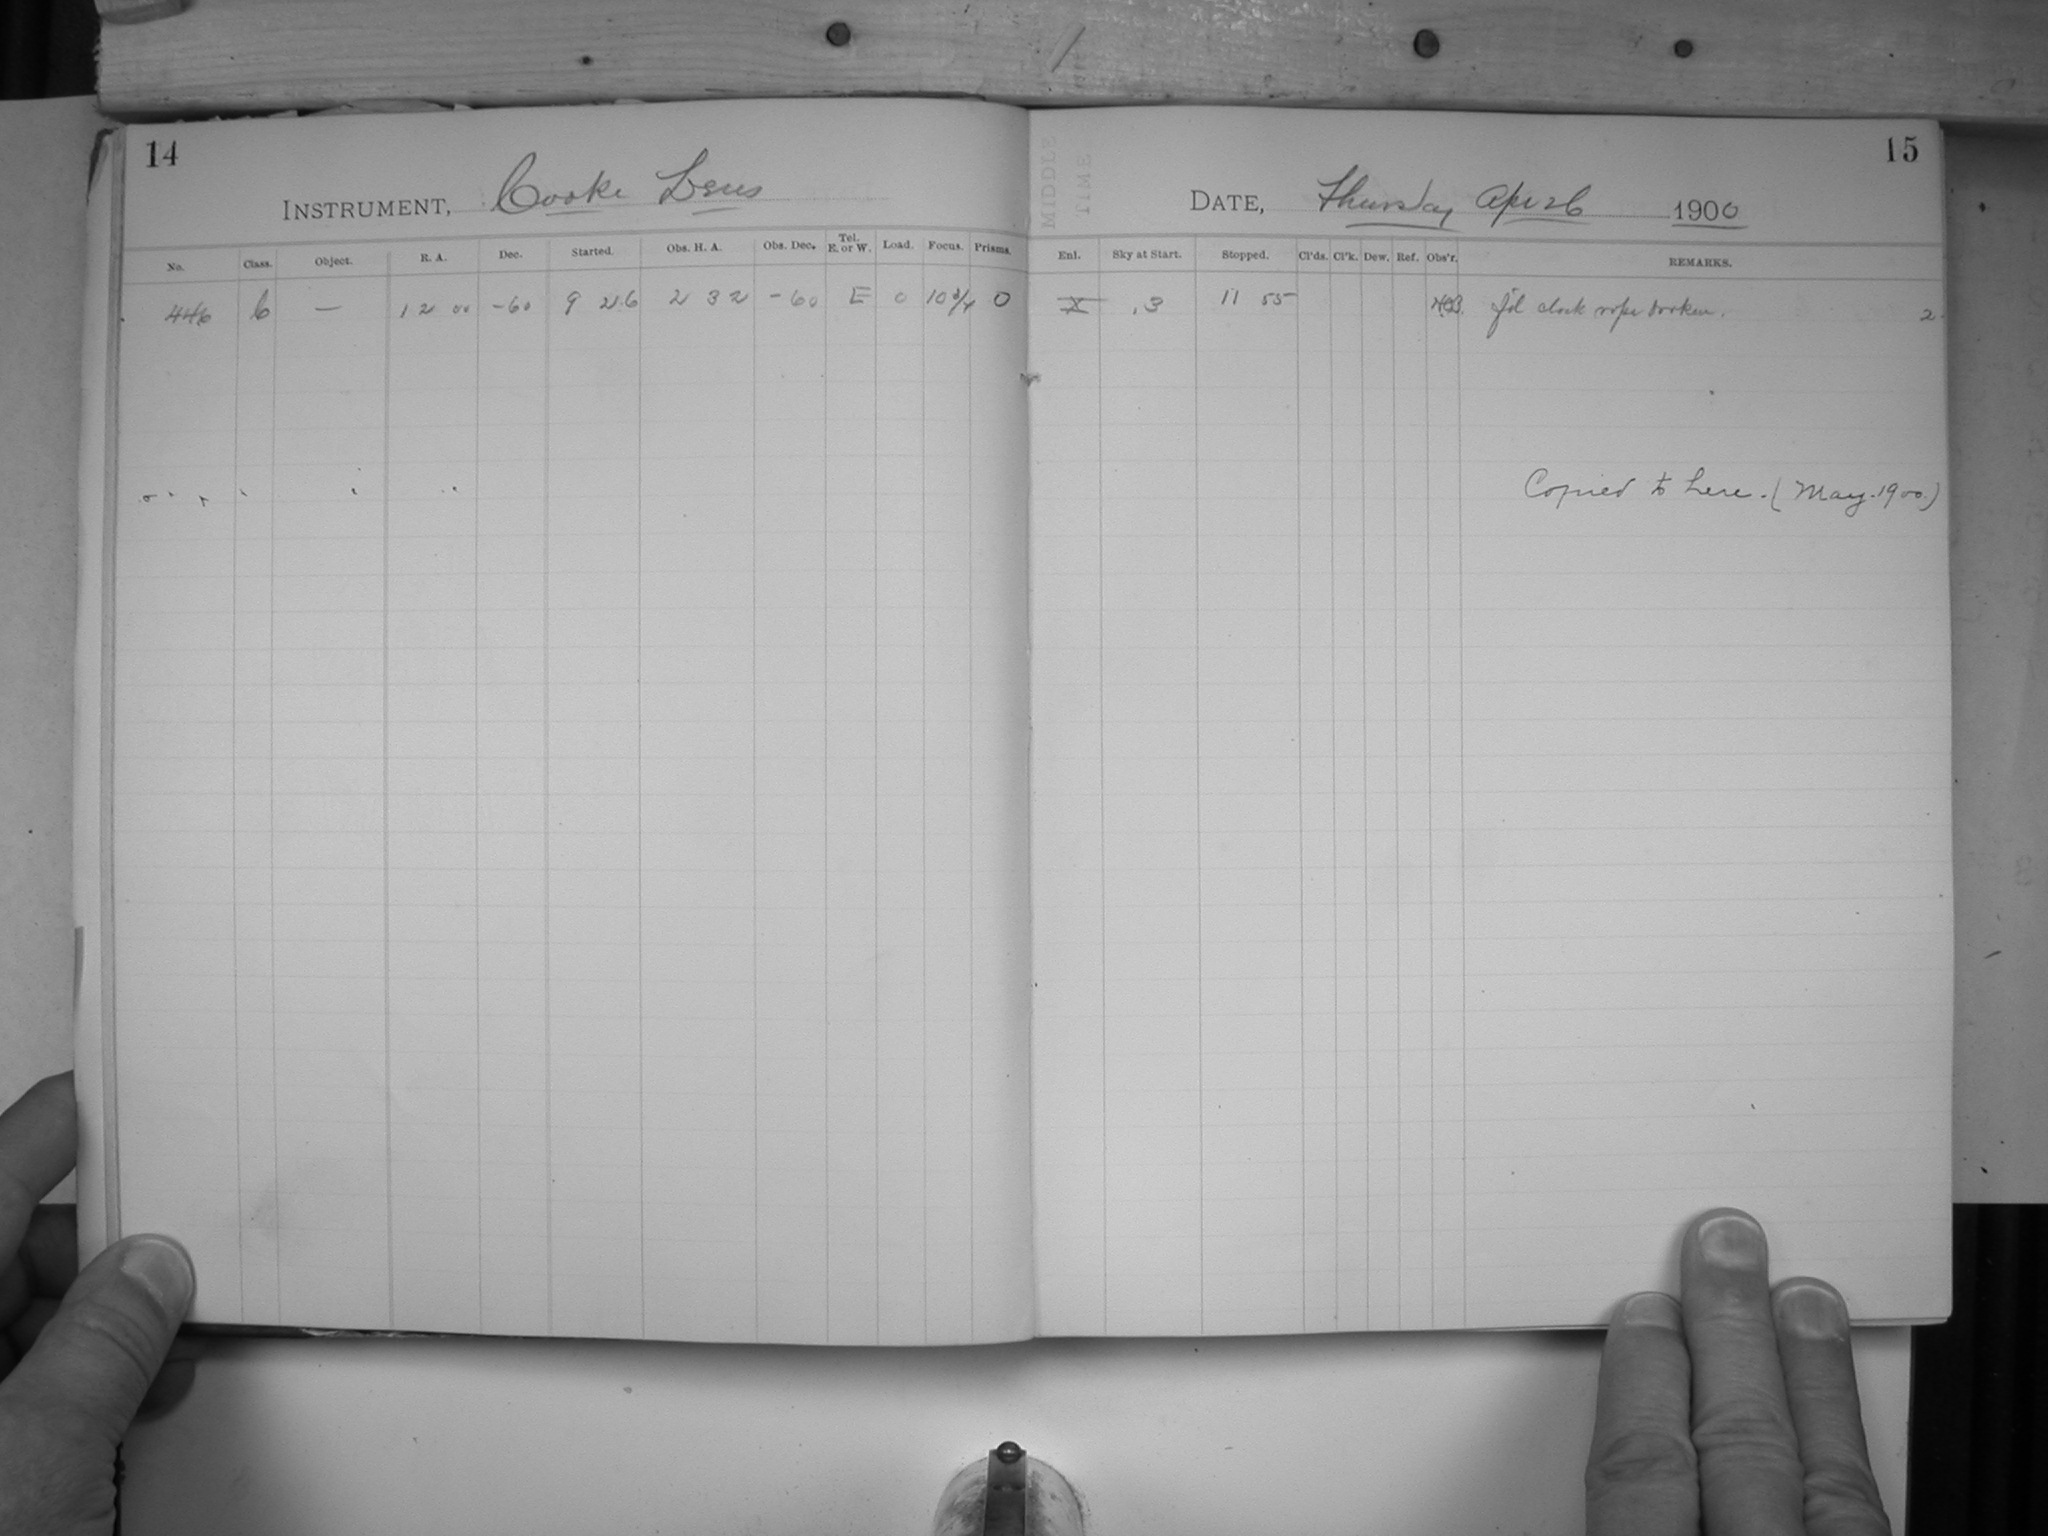 14
INSTRUMENT, Cooke Lens
No. Class. Object. R. A. Dec. Started. Obs. H. A. Obs. Dec. Tel. E. or W. Load. Focus. Prisms.
446 C — 12 00 -60 9 26 2 32 -60 E 0 10 3/4 0
15
DATE, Thursday Apr 26 1900
Enl. Sky at Start. Stopped. Cl'ds. Cl'k. Dew. Ref. Obs'r. REMARKS.
X .3 11 55 clock rope broken. 2
Copied to here. (May. 1900)
MIDDLE
TIME